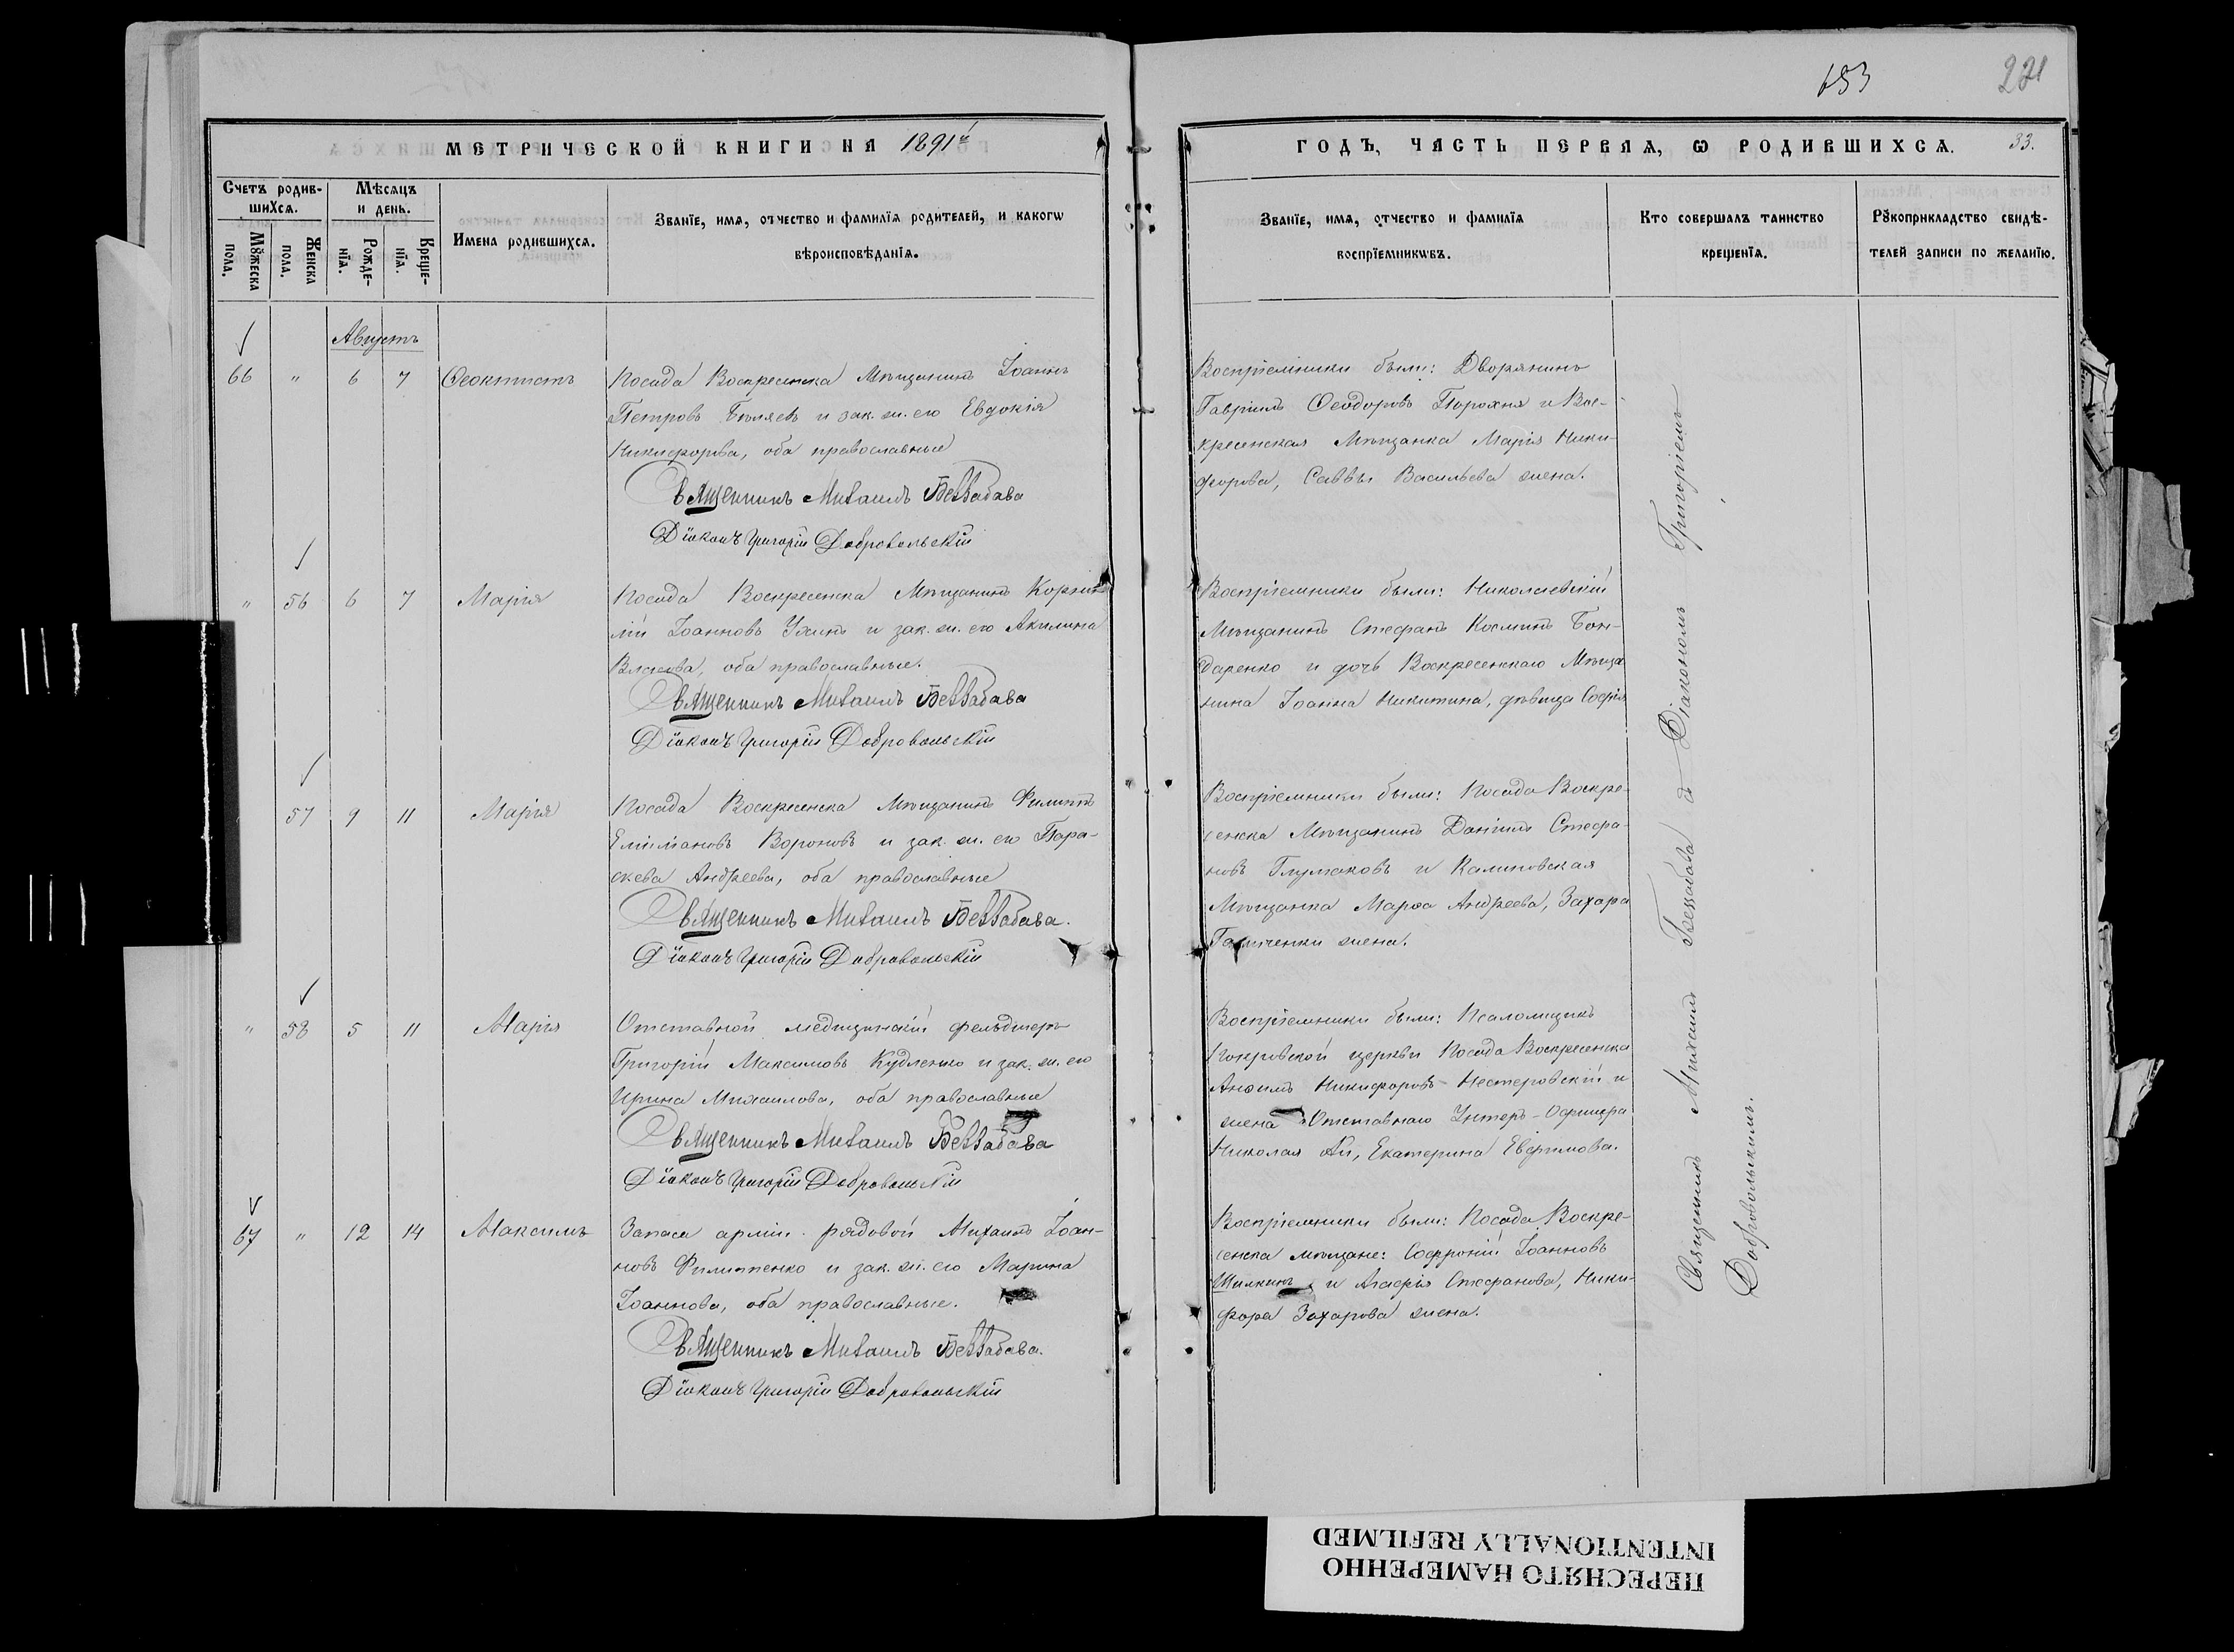 653
221
МЕТРИЧЕСКОЙ КНИГИ НА 1891й
ГОДЪ, ЧАСТЬ ПЕРВАЯ, Ѡ РОДИВШИХСѦ. 33.
Счетъ родив-
шихсѧ.
Мѣсѧцъ
и день.
Мꙋжеска
пола.
Женска
пола.
Рожде-
нїѧ.
Креще-
нїѧ.
Имена родившихсѧ.
Званїе, имѧ, отчество и фамилїѧ родителей, и какогѡ
вѣроисповѣданїѧ.
Званїе, имѧ, отчество и фамилїѧ
воспрїемникѡвъ.
Кто совершалъ таинство
крещенїѧ.
Рꙋкоприкладство свидѣ-
телей записи по желанїю.
Августъ
66 " 6 7 Ѳеоктистъ
Посада Воскресенска Мѣщанинъ Іоаннъ
Петровъ Бѣляевъ и зак. ж. его Евдокія
Никифорова, оба православные
Священникъ Михаилъ Беззабава
Діаконъ Григорій Добровольскій
Воспріемники были: Дворянинъ
Гавріилъ Ѳеодоровъ Порохня и Вос-
кресенская Мѣщанка Марія Ники-
форова, Саввы Васильева жена.
" 56 6 7 Марія
Посада Воскресенска Мѣщанинъ Корни-
лій Іоанновъ Ухинъ и зак. ж. его Акилина
Власова, оба православные.
Священникъ Михаилъ Беззабава
Діаконъ Григорій Добровольскій
Воспріемники были: Николаевскій
Мѣщанинъ Стефанъ Косминъ Бон-
даренко и дочь Воскресенскаго Мѣща
нина Іоанна Никитина, дѣвица Софія
57 9 11 Марія
Посада Воскресенска Мѣщанинъ Филиппъ
Емиліановъ Вороновъ и зак. ж. его Пара-
скева Андреева, оба православные
Священникъ Михаилъ Беззабава.
Діаконъ Григорій Добровольскій
Воспріемники были: Посада Воскре-
сенска Мѣщанинъ Даніилъ Стефа-
новъ Глумаковъ и Калиновская
Мѣщанка Марѳа Андреева, Захара
жена.
" 58 5 11 Марія
Отставной медицинскій фельдшеръ
Григорій Максимовъ Кудленко и зак. ж. его
Ирина Михаилова, оба православные
Священникъ Михаилъ Беззабава
Діаконъ Григорій Добровольскій
Воспріемники были: Псаломщикъ
Покровской церкви Посада Воскресенска
Анѳимъ Никифоровъ Нестеровскій и
жена Отставнаго Унтеръ-Офицера
Николая Екатерина Евфимова.
67 " 12 14 Максимъ
Запаса арміи рядовой Михаилъ Іоан-
новъ Филипенко и зак. ж. его Марина
Іоаннова, оба православные.
Священникъ Михаилъ Беззабава.
Діаконъ Григорій Добровольскій
Воспріемники были: Посада Воскре-
сенска мѣщане: Софроній Іоанновъ
Шилкинъ и Агафія Стефанова, Ники-
фора Захарова жена.
Священникъ Михаилъ Беззабава съ Діакономъ Григоріемъ
Добровольскимъ.
ПЕРЕСНЯТО НАМЕРЕННО
INTENTIONALLY REFILMED